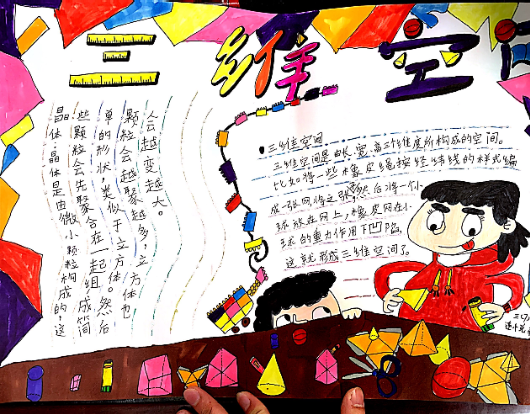 三维空间
晶体:晶体是由微小颗粒构成的,这
些颗粒会先聚合在一起组成简
单的形状,类似于立方体。然后
颗粒会越聚越多,立方体也
会越变越大。
三维空间
三维空间是由长、宽、高三个维度所构成的空间。
比如将一些橡皮绳按经纬线的样式编
成一张网将之绷紧,然后将一個小
球放在网上,橡皮网在小
球的重力作用下凹陷,
这就形成三维空间了。